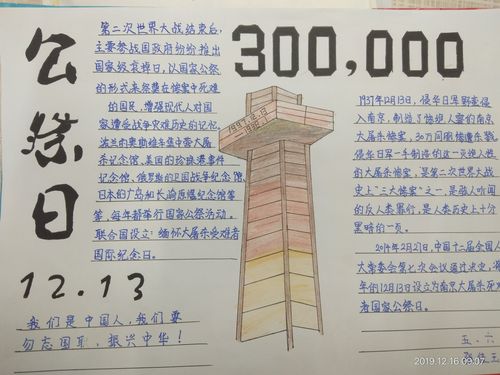 公祭日
12.13
我们是中国人，我们要
勿忘国耻，振兴中华！
第二次世界大战结束后，
主要参战国政府纷纷推出
国家级哀悼日，以国家公祭
的形式来祭奠在惨案中死难
的国民，增强现代人对国
家遭受战争灾难历史的记忆。
波兰的奥斯维辛集中营大屠
杀纪念馆、美国的珍珠港事件
纪念馆、俄罗斯的卫国战争纪念馆、
日本的广岛和长崎原爆纪念馆等
等，每年都举行国家公祭活动。
联合国设立：缅怀大屠杀受难者
国际纪念日。
300,000
1937.12.13
1937年12月13日，侵华日军野蛮侵
入南京，制造了惨绝人寰的南京
大屠杀惨案，30万同胞惨遭杀戮
侵华日军一手制造的这一灭绝人性
的大屠杀惨案，是第二次世界大战
史上"三大惨案"之一，是骇人听闻
的反人类罪行，是人类历史上十分
黑暗的一页。
2014年2月27日，中国十二届全国人
大常委会第七次会议通过决定，将
年的12月13日设立为南京大屠杀死
者国家公祭日。
五.六
2019.12.16 09:07